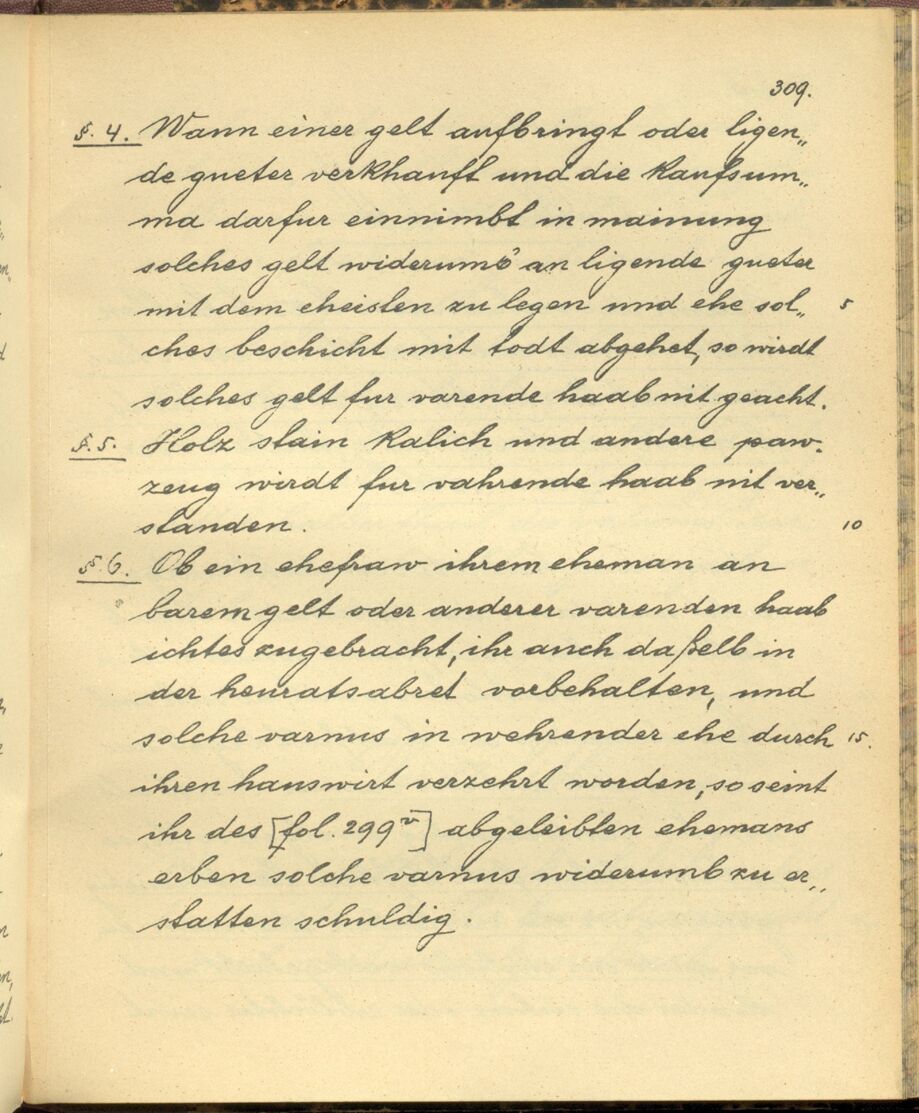 309.
§. 4. Wann einer gelt aufbringt oder ligen„
de gueter verkhauft und die kaufsum„
ma darfur einnimbt in mainung
solches gelt widerumb an ligende gueter
mit dem eheisten zu legen und ehe sol„ 5
ches beschicht mit todt abgehet, so wirdt
solches gelt fur varende haab nit geacht.
§. 5. Holz stain kalich und andere paw-
zeug wirdt fur vahrende haab nit ver„
standen. 10
§. 6. Ob ein ehefraw ihrem eheman an
barem gelt oder anderer varenden haab
ichtes zugebracht, ihr auch daßelb in
der heuratsabret vorbehalten, und
solche varnus in wehrender ehe durch 15.
ihren hauswirt verzehrt worden, so seint
ihr des [fol. 299v] abgeleibten ehemans
erben solche varnus widerumb zu er„
statten schuldig.